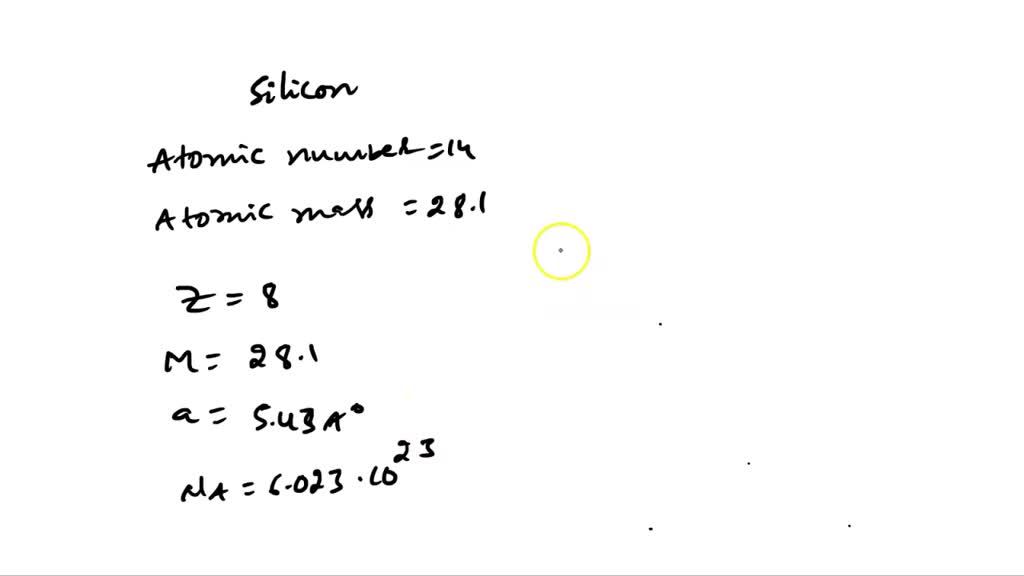 Silicon
Atomic number = 14
Atomic mass = 28.1
Z = 8
M = 28.1
a = 5.43 A°
NA = 6.023 · 10²³